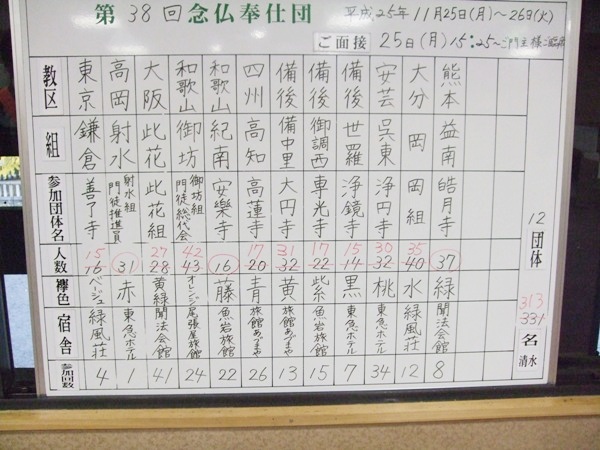 第38回 念仏奉仕団 平成25年11月25日(月)～26日(火)
ご面接 25日(月)15:25～ご門主様ご臨席
教区 東京 高岡 大阪 和歌山 和歌山 四州 備後 備後 備後 安芸 大分 熊本
組 鎌倉 射水 此花 御坊 紀南 高知 備中里 御調西 世羅 呉東 岡 益南
参加団体名 善了寺 射水組門徒推進員 此花組 御坊組門徒総代会 安樂寺 高蓮寺 大円寺 専光寺 浄鏡寺 浄円寺 岡組 皓月寺
15 27 42 17 31 17 15 30 35
人数 16 31 28 43 16 20 32 22 14 32 40 37
襷色 ベージュ 赤 黄緑 オレンジ 藤 青 黄 紫 黒 桃 水 緑
宿舎 緑風荘 東急ホテル 聞法会館 尾張屋旅館 魚岩旅館 旅館あづまや 旅館あづまや 魚岩旅館 東急ホテル 東急ホテル 緑風荘 聞法会館
参加回数 4 1 41 24 22 26 13 15 7 34 12 8
12団体
313
331名
清水